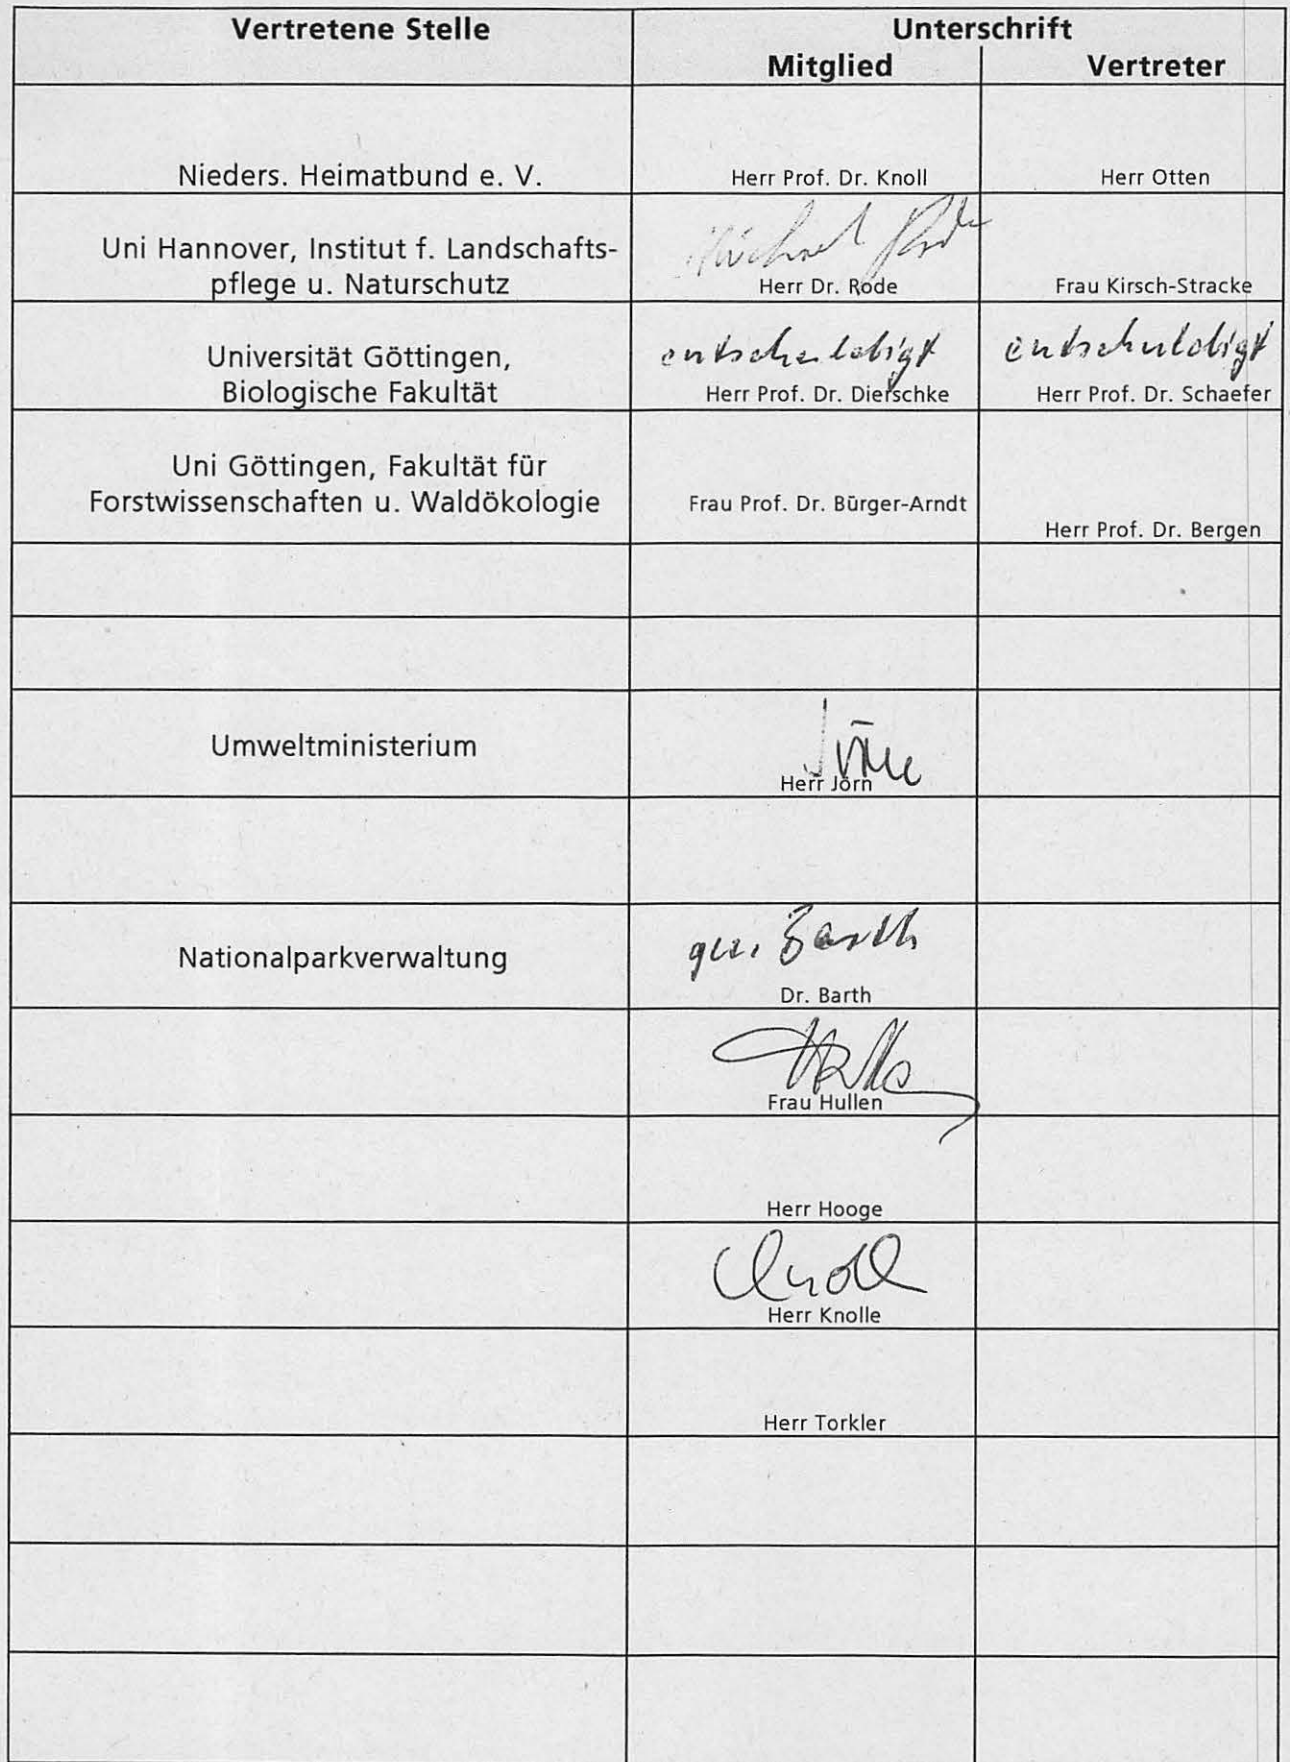 Vertretene Stelle
Unterschrift
Mitglied
Vertreter
Nieders. Heimatbund e. V.
Herr Prof. Dr. Knoll
Herr Otten
Uni Hannover, Institut f. Landschafts-
pflege u. Naturschutz
Michael Rode
Herr Dr. Rode
Frau Kirsch-Stracke
Universität Göttingen,
Biologische Fakultät
entschuldigt
Herr Prof. Dr. Dierschke
entschuldigt
Herr Prof. Dr. Schaefer
Uni Göttingen, Fakultät für
Forstwissenschaften u. Waldökologie
Frau Prof. Dr. Bürger-Arndt
Herr Prof. Dr. Bergen
Umweltministerium
Jörn
Herr Jörn
Nationalparkverwaltung
gez. Barth
Dr. Barth
Frau Hullen
Herr Hooge
Knolle
Herr Knolle
Herr Torkler